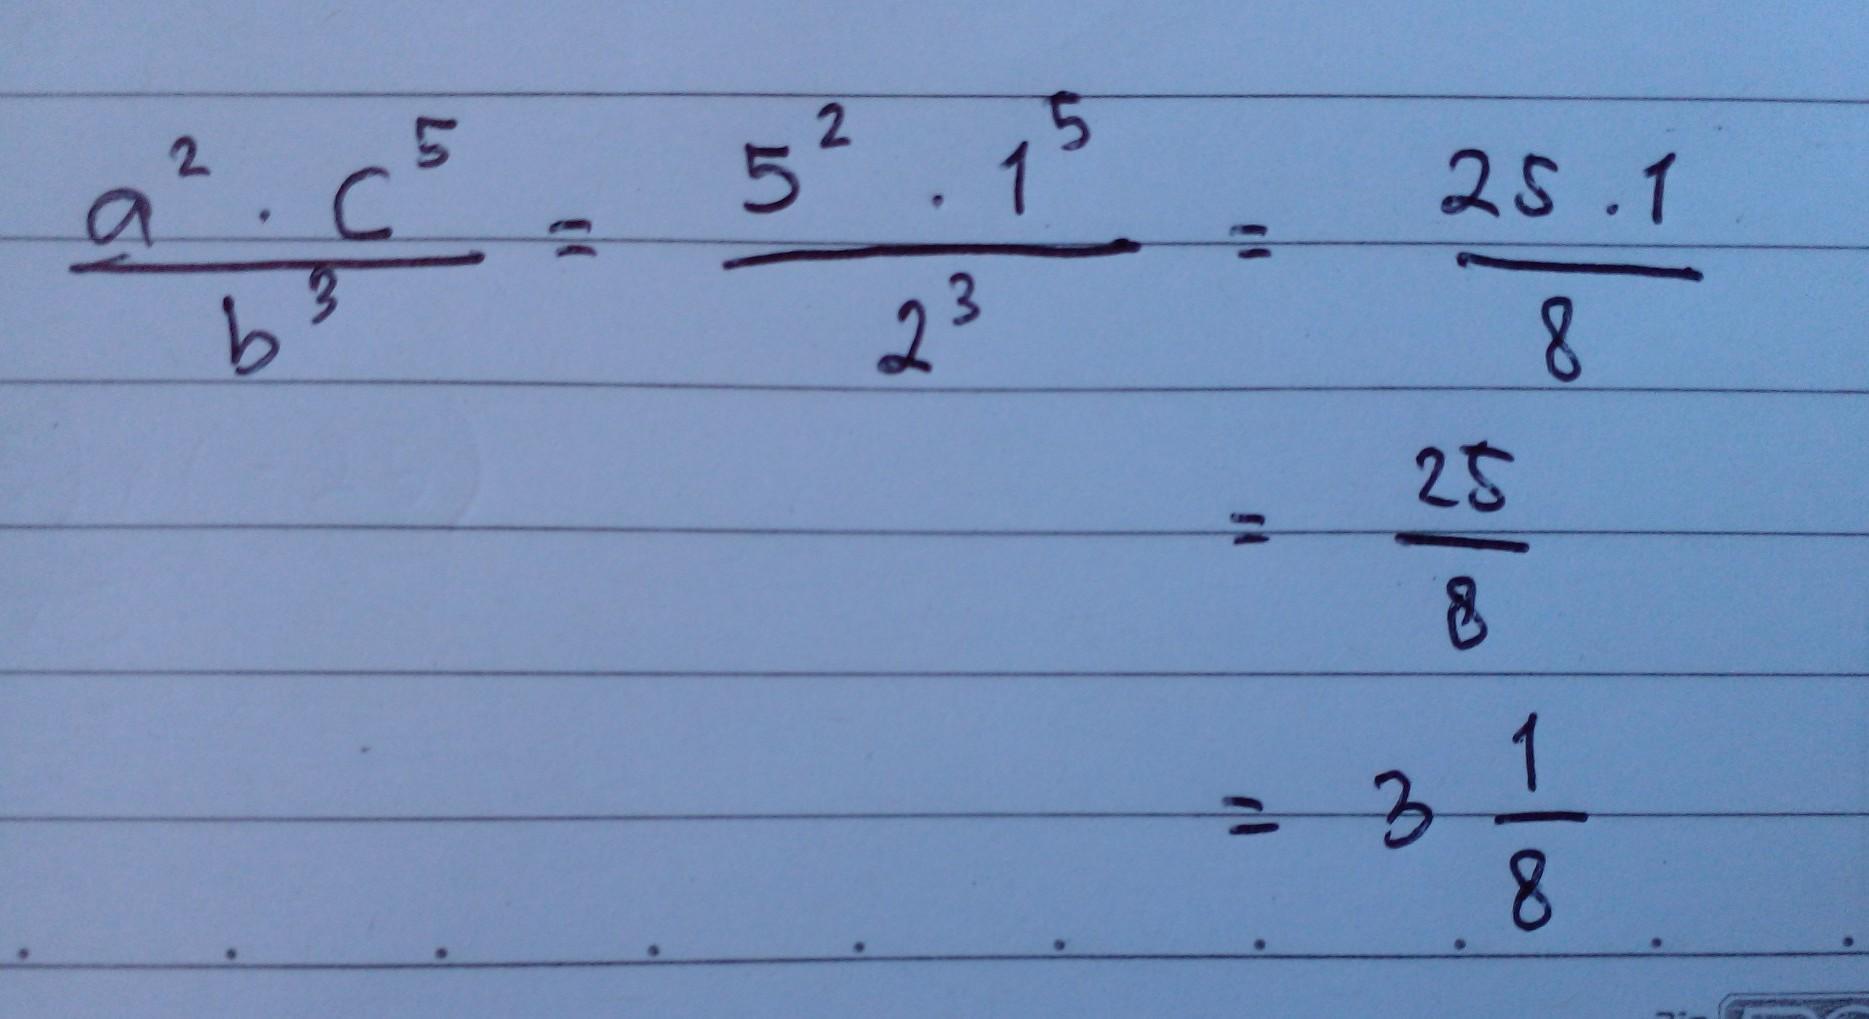 a² . c⁵ / b³ = 5² . 1⁵ / 2³ = 25 . 1 / 8
= 25 / 8
= 3 1/8